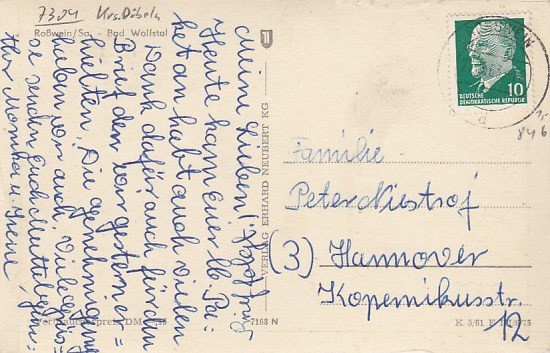 7304 Krs. Döbeln
Roßwein/Sa. - Bad Wolfstal
Meine Lieben!
Heute kam Euer lb. Pa=
ket an habt auch vielen
Dank dafür auch für den
Brief den wir gestern er=
hielten. Die Genehmigung
haben wir auch Viele Grüs=
se senden Euch
Eure Monika u. Irene
VERLAG ERHARD NEUBERT KG
Verbraucherpreis DM
7168 N
K 5/61
DEUTSCHE
DEMOKRATISCHE REPUBLIK
10
Familie
Peter Niestroj
(3) Hannover
Kopernikusstr.
12